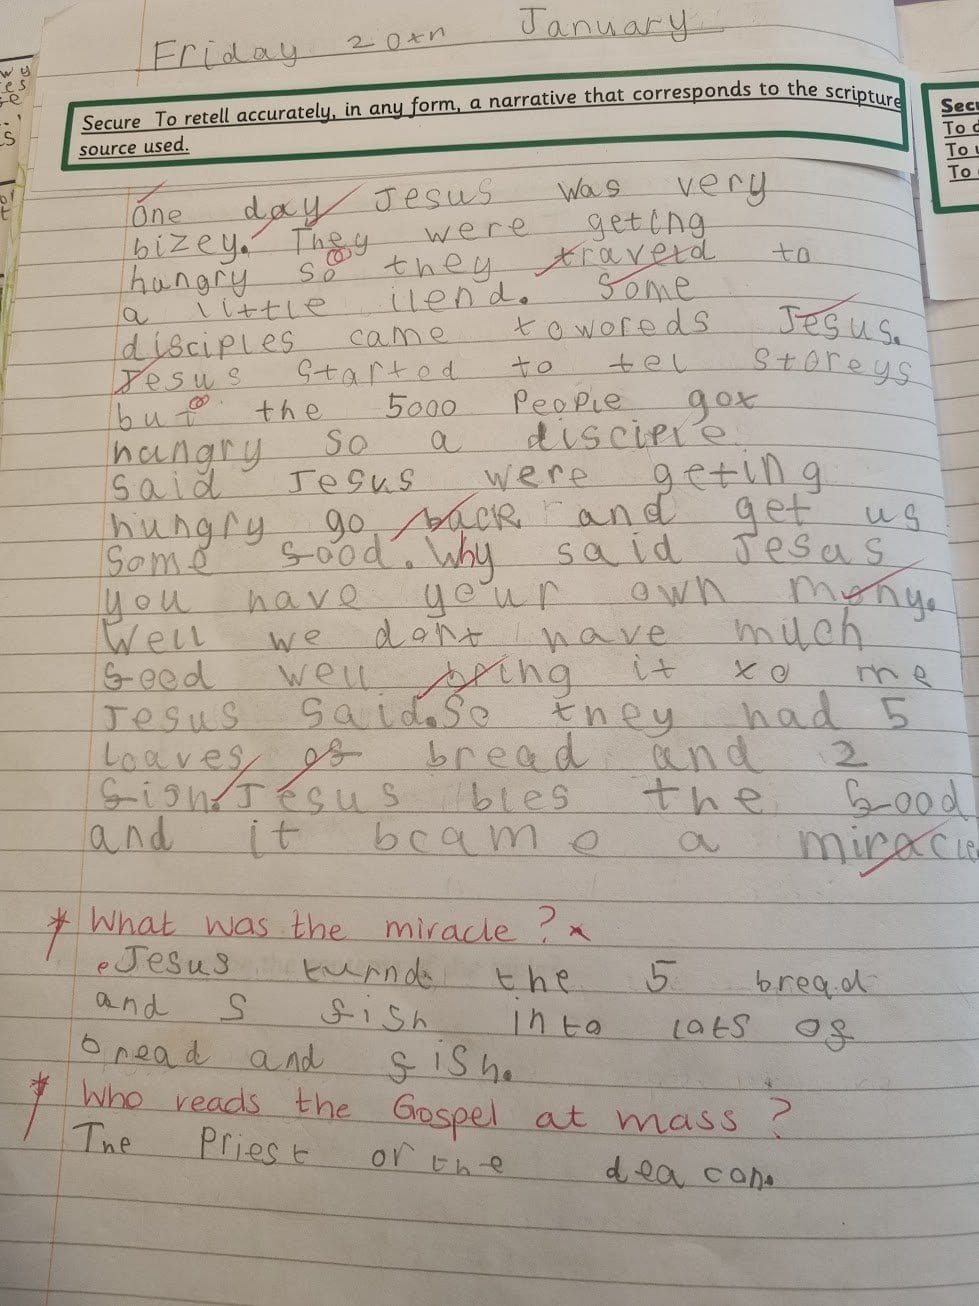 Friday 20th January
Secure To retell accurately, in any form, a narrative that corresponds to the scripture
source used.
One day Jesus was very
bizey. They were geting
hungry so they traverd to
a little ilend. Some
disciples came toworeds Jesus.
Jesus started to tel storeys
but the 5000 people got
hungry so a disciple
said Jesus were geting
hungry go back and get us
some food. Why said Jesas
you have your own mony.
Well we dont have much
food well bring it to me
Jesus said. So they had 5
loaves of bread and 2
fish. Jesus bles the food
and it bcame a miracle
* What was the miracle? *
Jesus turnd the 5 bread
and 5 fish into lots of
bread and fish.
* Who reads the Gospel at mass?
The Priest or the deacon.
Secu
To
To
To